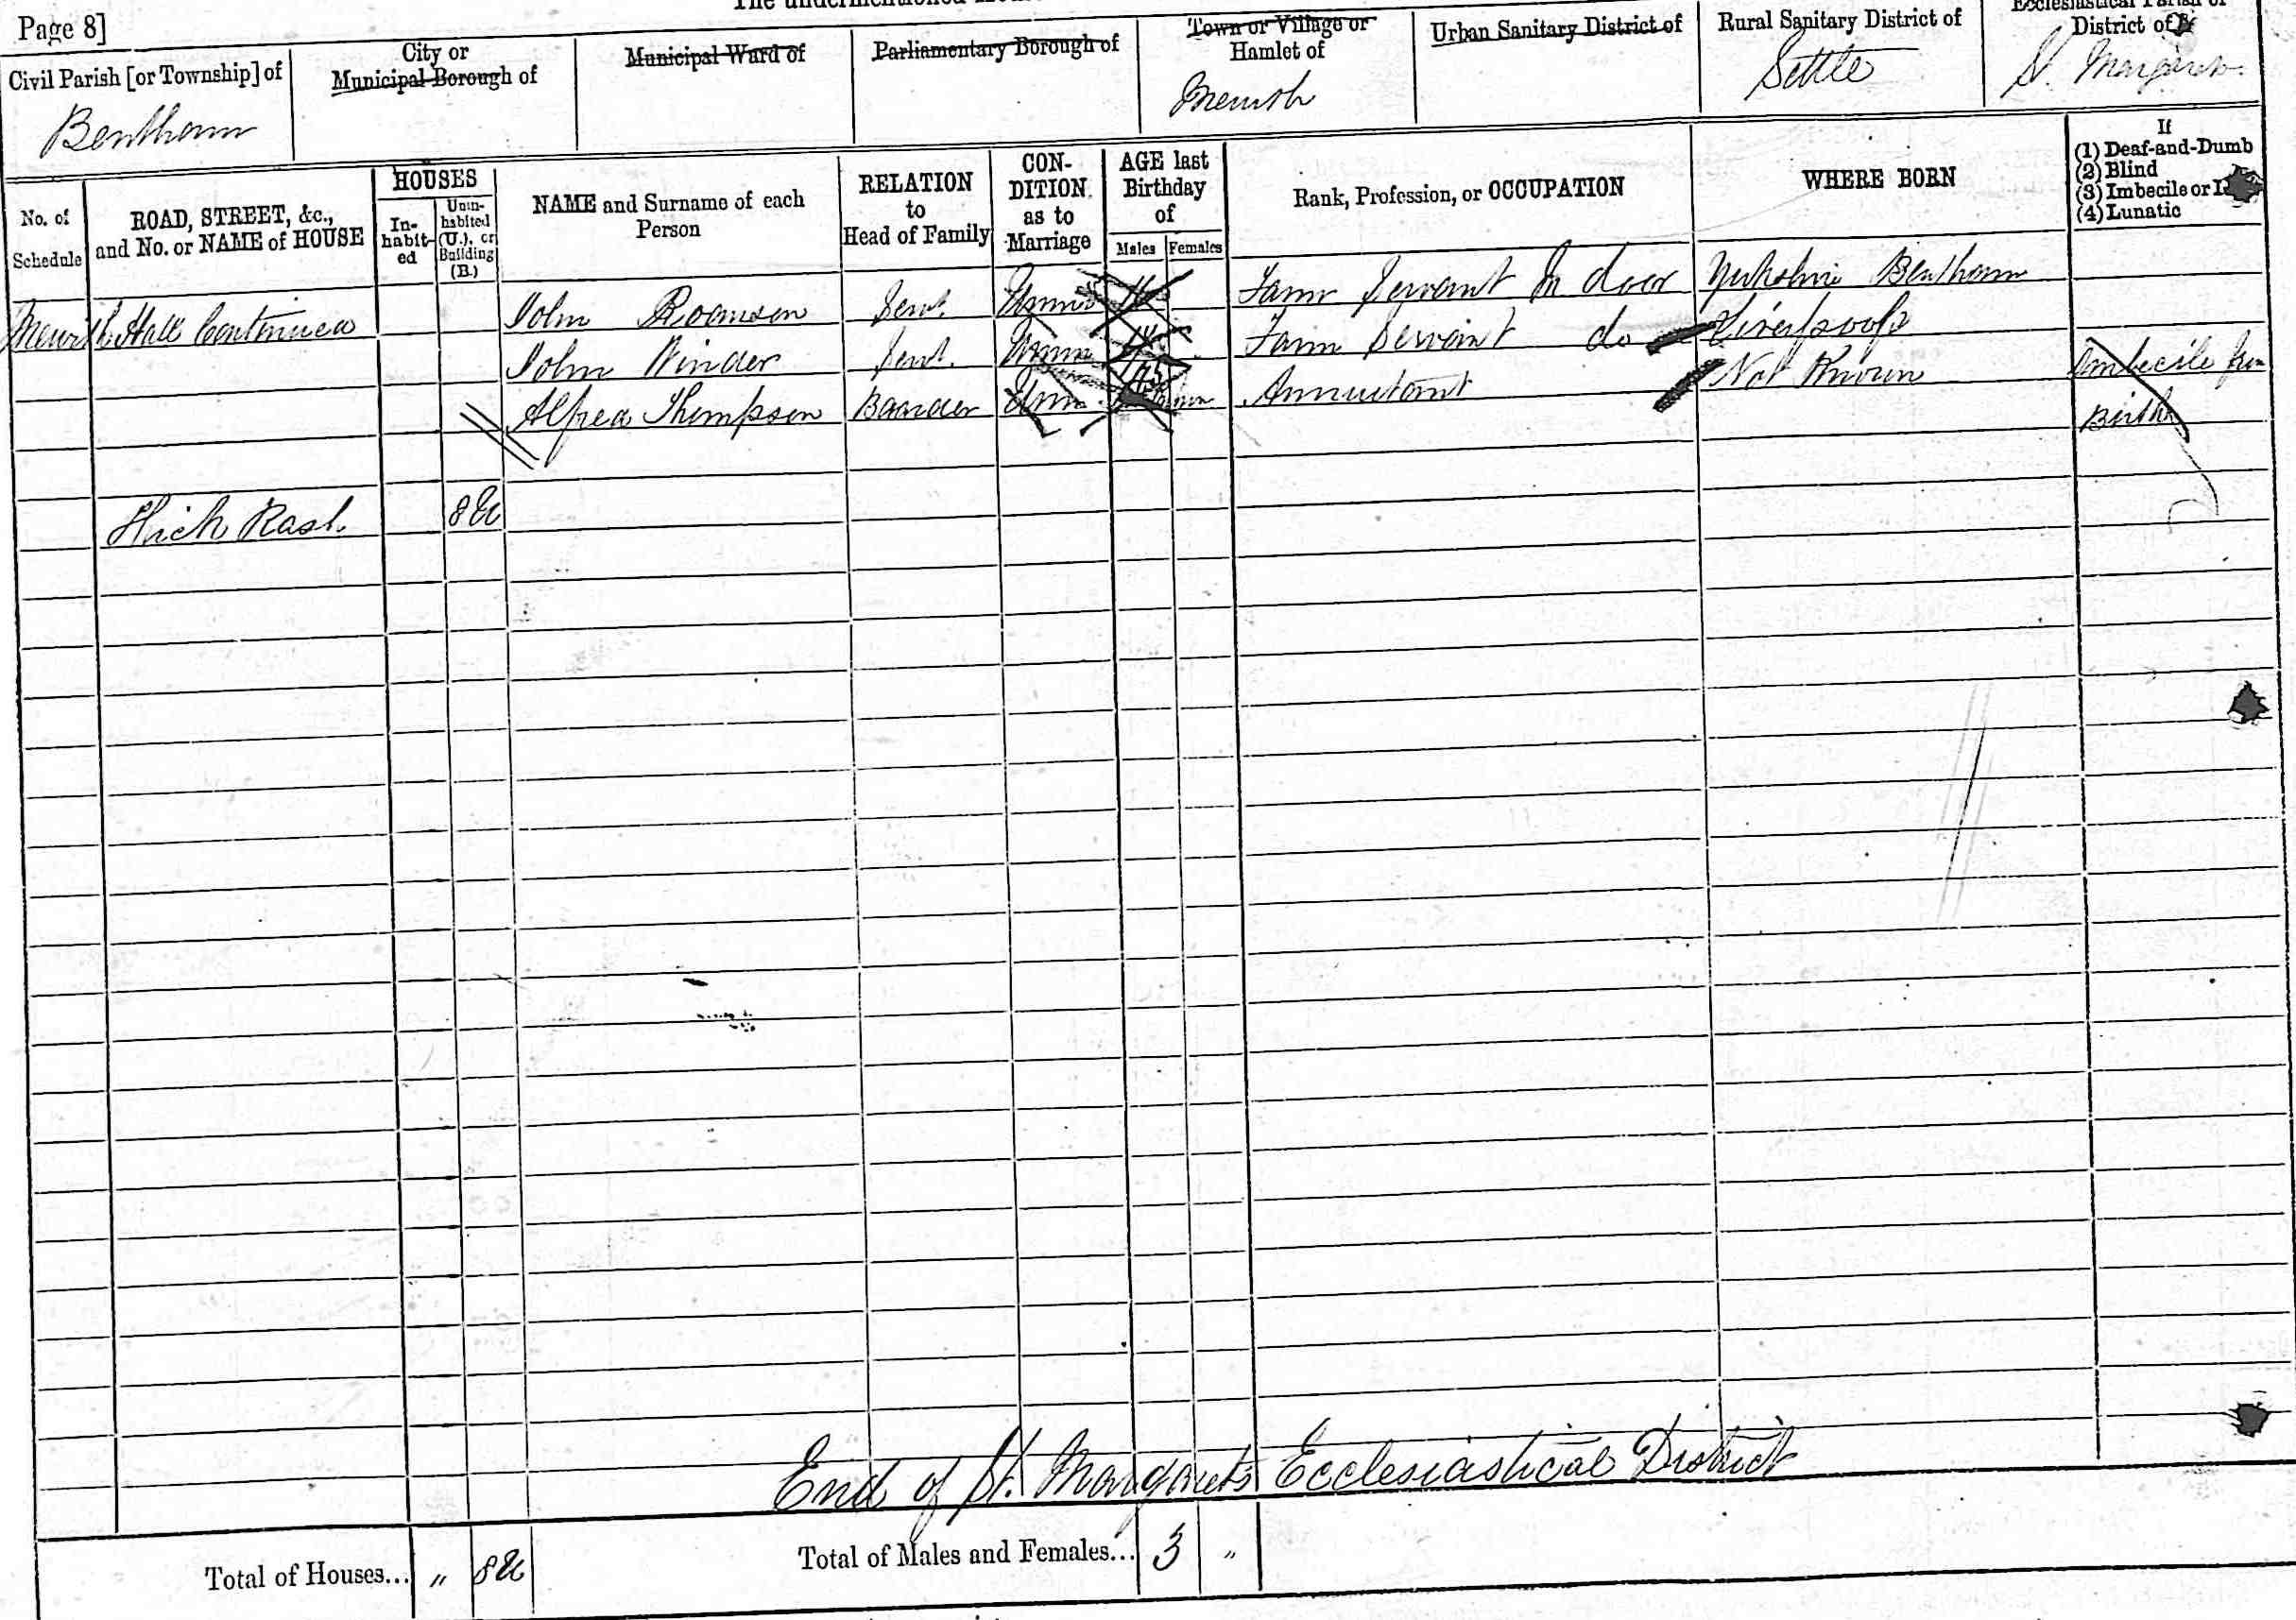 Page 8]
Civil Parish [or Township] of
Bentham
City or
Municipal Borough of
Municipal Ward of
Parliamentary Borough of
Town or Village or
Hamlet of
Mewith
Urban Sanitary District of
Rural Sanitary District of
Settle
District of
St. Margarets
No. of
Schedule
ROAD, STREET, &c.,
and No. or NAME of HOUSE
HOUSES
In-
habit-
ed
Unin-
habited
(U.), or
Building
(B.)
NAME and Surname of each
Person
RELATION
to
Head of Family
CON-
DITION
as to
Marriage
AGE last
Birthday
of
Males
Females
Rank, Profession, or OCCUPATION
WHERE BORN
If
(1) Deaf-and-Dumb
(2) Blind
(3) Imbecile or
(4) Lunatic
Mewith Hall Continued John Servt. Unm Farm Servant In door Yorkshire Bentham
John Winder Servt. Unm Farm Servant do Liverpool
Alfred Thompson Boarder Unm Annuitant Not Known Imbecile from
Birth
8 U
End of St. Margarets Ecclesiastical District
Total of Houses... " 8 U
Total of Males and Females... 3 "